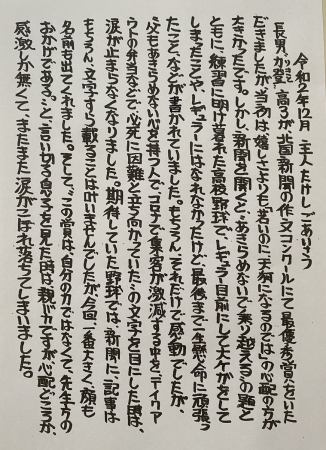 令和2年12月　主人たけし ごあいさつ
長男が登高らが北国新聞の作文コンクールにて最優秀賞をいた
だきましたが当初は嬉しさよりも「若いのに天狗になるのでは」の心配の方が
大きかったです。しかし新聞を開くと「あきらめないで乗り越える」の題と
ともに、練習に明け暮れた高校野球で、レギュラー目前にして大ケガをして
しまったことや、レギュラーにはなれなかったけど「最後まで一生懸命に頑張っ
たこと」などが書かれていました。もちろん、それだけで感動でしたが、
「父もあきらめない心を持つ人で、コロナで集客が激減する中をテイクア
ウトの弁当などで必死に困難と立ち向かっていた」の文字を目にした時は、
涙が止まらなくなりました。期待していた野球では、新聞に記事は
もちろん、文字すら載ることは叶いませんでしたが今回一番大きく顔も
名前も出てくれました。そして、「この賞は自分の力ではなくて、先生方の
おかげである。」と言い切る息子を見た時は親バカですが心配どころか、
感激しか無くて、またまた涙がこぼれ落ちてしまいました。